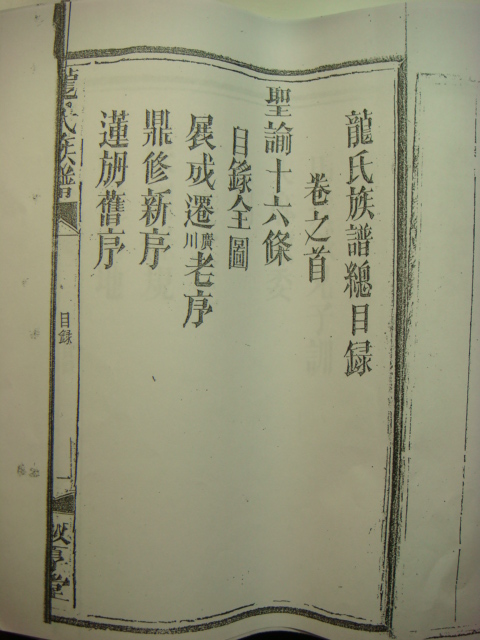 龍氏族譜總目録
卷之首
聖諭十六條
目錄全圖
展成遷廣川老序
鼎修新序
蓮舫舊序
龍氏族譜
目録
一
敦厚堂